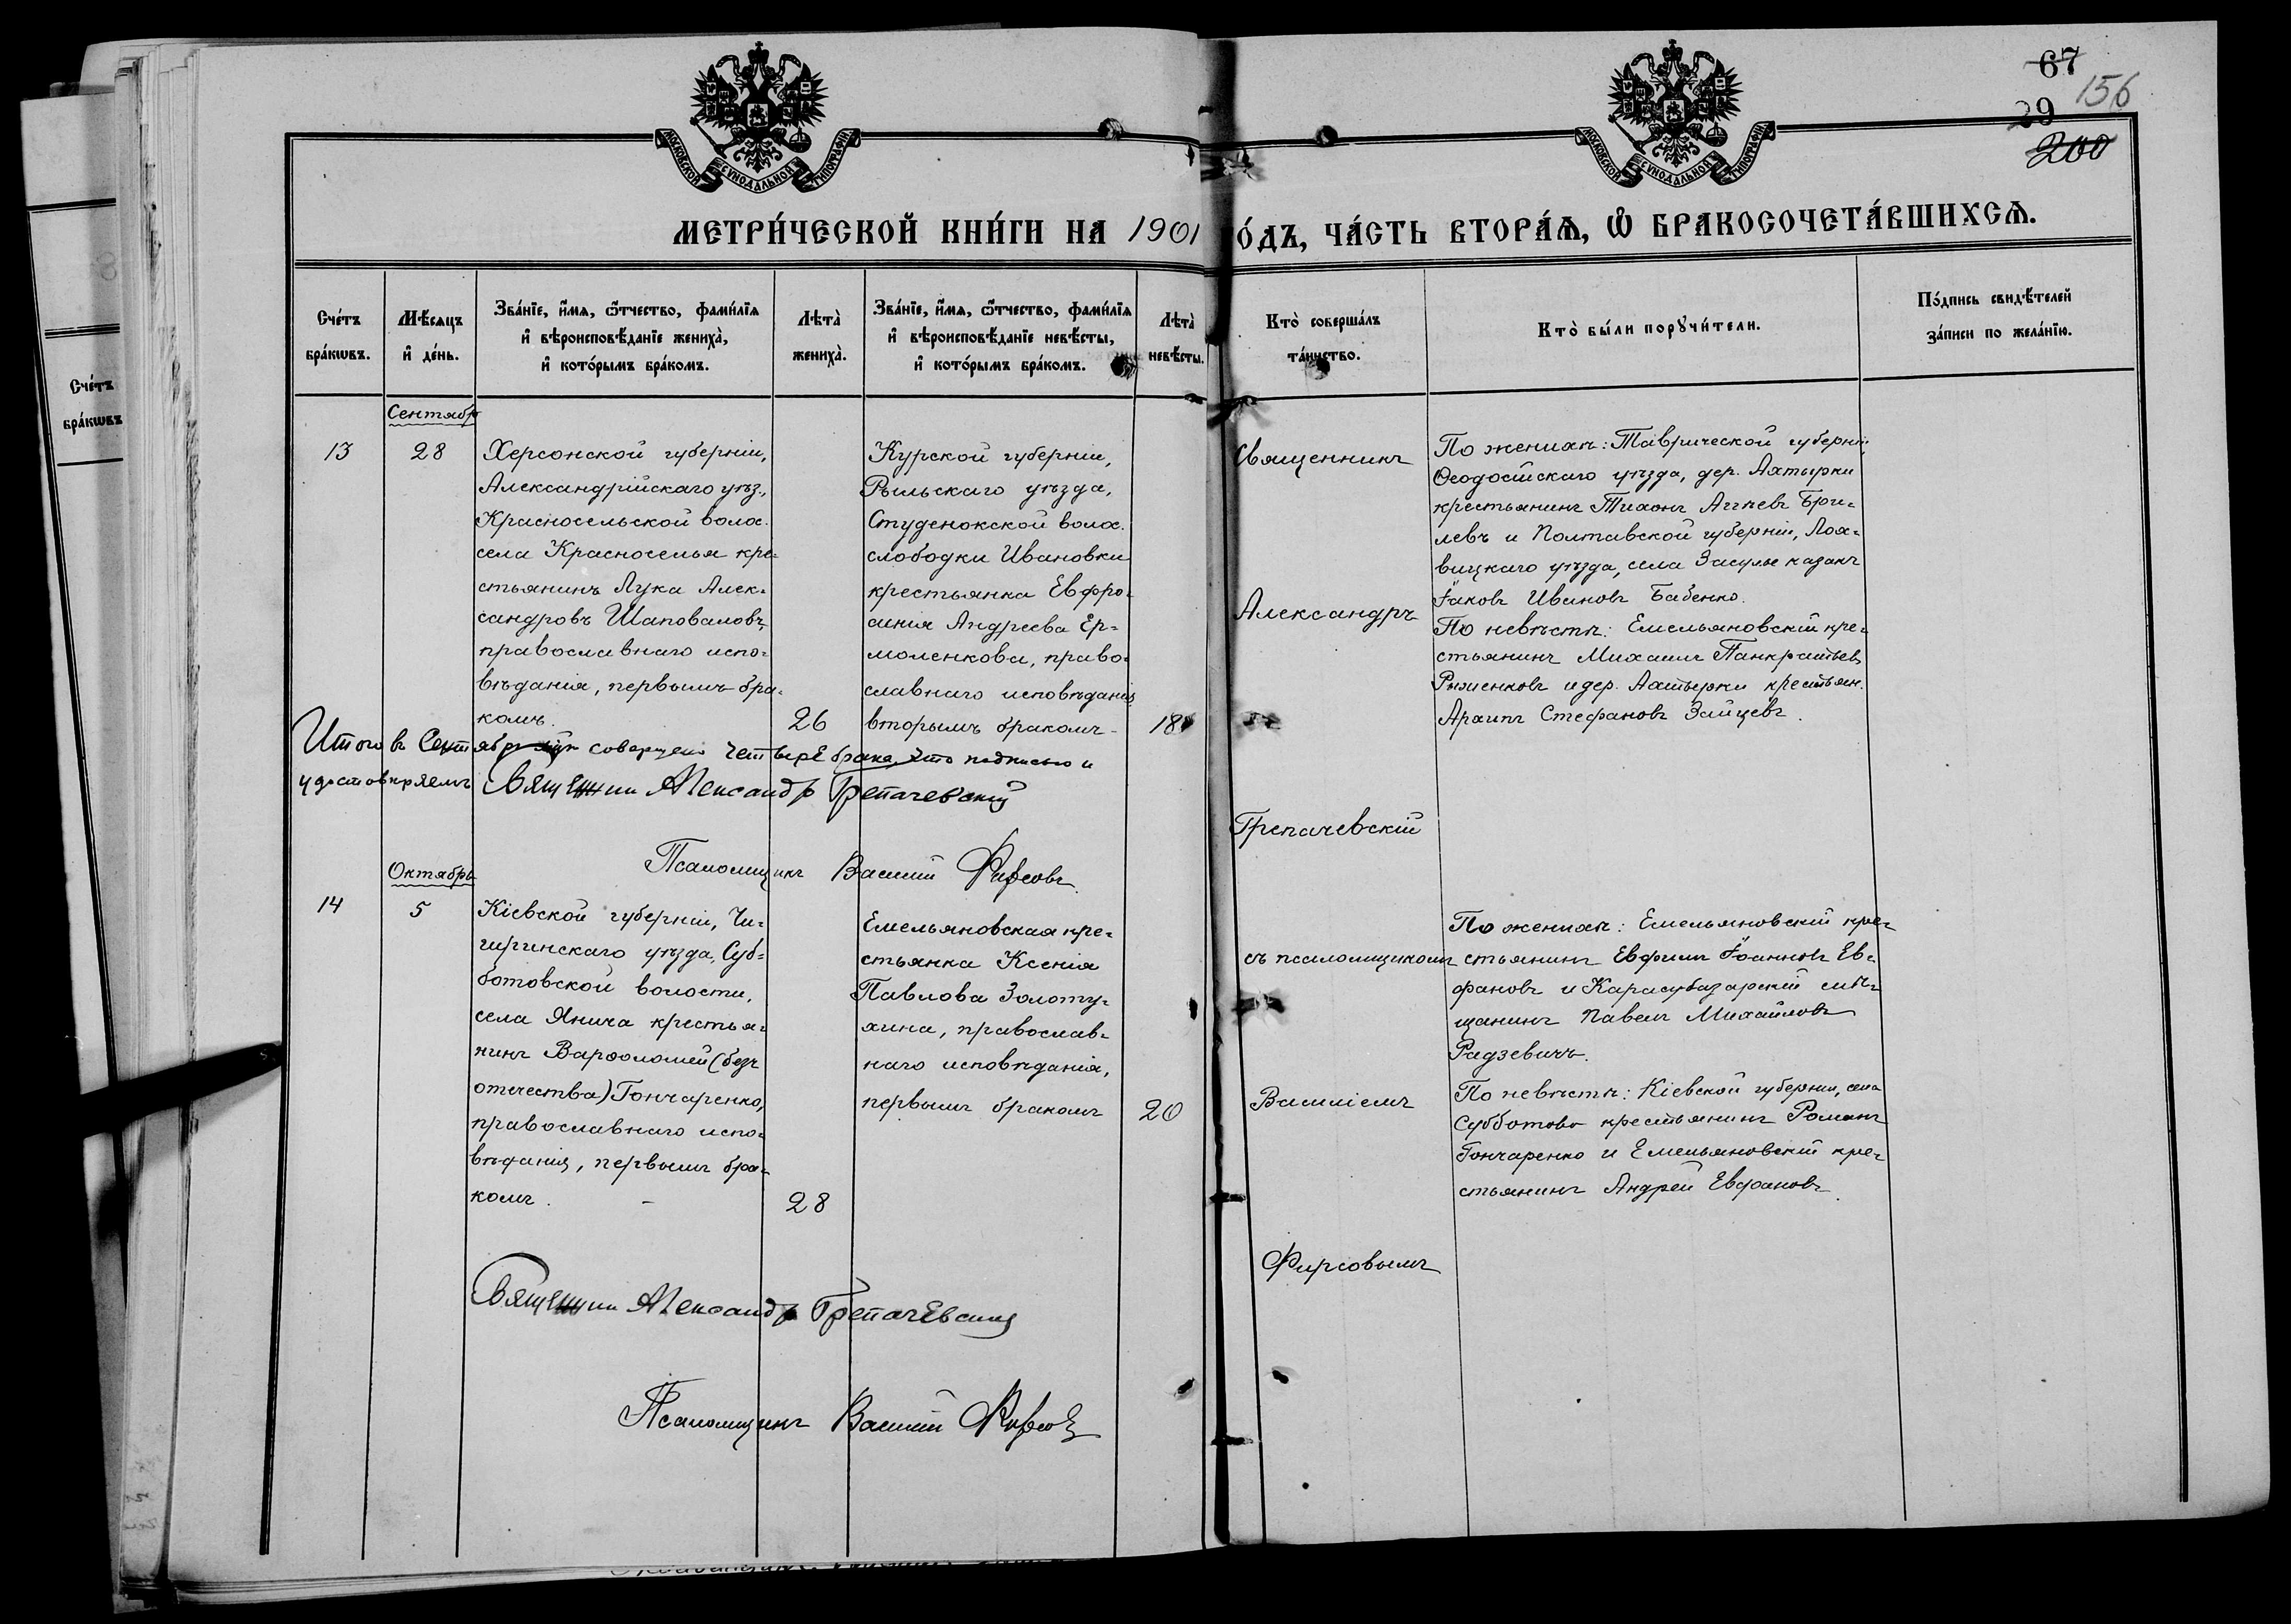 67
156
29
200
МОСКОВСКОЙ СѴНОДАЛЬНОЙ ТИПОГРАФІИ
МОСКОВСКОЙ СѴНОДАЛЬНОЙ ТИПОГРАФІИ
МЕТРИ́ЧЕСКОЙ КНИ́ГИ НА 1901
О́ДЪ, ЧА́СТЬ ВТОРА́Ѧ, Ѽ БРАКОСОЧЕТА́ВШИХСѦ.
Сче́тъ бра́кѡвъ.
Мѣ́сяцъ и҆ де́нь.
Зва́нїе, и҆́мѧ, ѻ҆́тчество, фами́лїѧ
и҆ вѣроисповѣ́данїе жениха̀,
и҆ кото́рымъ бра́комъ.
Лѣта̀ жениха̀.
Зва́нїе, и҆́мѧ, ѻ҆́тчество, фами́лїѧ
и҆ вѣроисповѣ́данїе невѣ́сты,
и҆ кото́рымъ бра́комъ.
Лѣта̀ невѣ́сты.
Кто̀ соверша́лъ та́инство.
Кто̀ бы́ли порꙋчи́тели.
По́дпись свидѣ́телей за́писи по жела́нїю.
Сче́тъ
бра́кѡвъ
Сентябр
13
28
Херсонской губерніи,
Александрійскаго уѣз.,
Красносельской волос.
села Красноселья кре-
стьянинъ Лука Алек-
сандровъ Шаповаловъ,
православнаго испо-
вѣданія, первымъ бра-
комъ.
26
Курской губерніи,
Рыльскаго уѣзда,
Студенокской волос.
слободки Ивановки
крестьянка Евфро-
синія Андреева Ер-
моленкова, право-
славнаго исповѣданія
вторымъ бракомъ -
18
Священникъ
Александръ
Грепачевскій
По женихѣ: Таврической губерніи,
Ѳеодосійскаго уѣзда, дер. Ахтырки
крестьянинъ Тихонъ Агѣевъ Бри-
левъ и Полтавской губерніи, Лох-
вицкаго уѣзда, села Засулье казакъ
Іаковъ Ивановъ Бабенко.
По невѣстѣ: Емельяновскій кре-
стьянинъ Михаилъ Панкратьевъ
Рыженковъ и дер. Ахтырки крестьян.
Архипъ Стефановъ Зайцевъ.
Итого въ Сентябрѣ совершено четыре брака, что подписью и
удостовѣряемъ Священник Александр Грепачевскій
Псаломщикъ Василій Фирсовъ.
Октябрь
14
5
Кіевской губерніи, Чи-
гиринскаго уѣзда, Суб-
ботовской волости,
села Янича крестья-
нинъ Варѳоломей (безъ
отчества) Гончаренко,
православнаго испо-
вѣданія, первымъ бра-
комъ. -
28
Емельяновская кре-
стьянка Ксенія
Павлова Золоту-
хина, православ-
наго исповѣданія,
первымъ бракомъ
20
съ псаломщикомъ
Василіемъ
Фирсовымъ
По женихѣ: Емельяновскій кре-
стьянинъ Евфимъ Іоанновъ Ев-
фановъ и Карасубазарскій мѣ-
щанинъ Павелъ Михайловъ
Радзевичъ.
По невѣстѣ: Кіевской губерніи, села
Субботово крестьянинъ Романъ
Гончаренко и Емельяновскій кре-
стьянинъ Андрей Евфановъ.
Священник Александр Грепачевскій
Псаломщикъ Василій Фирсовъ